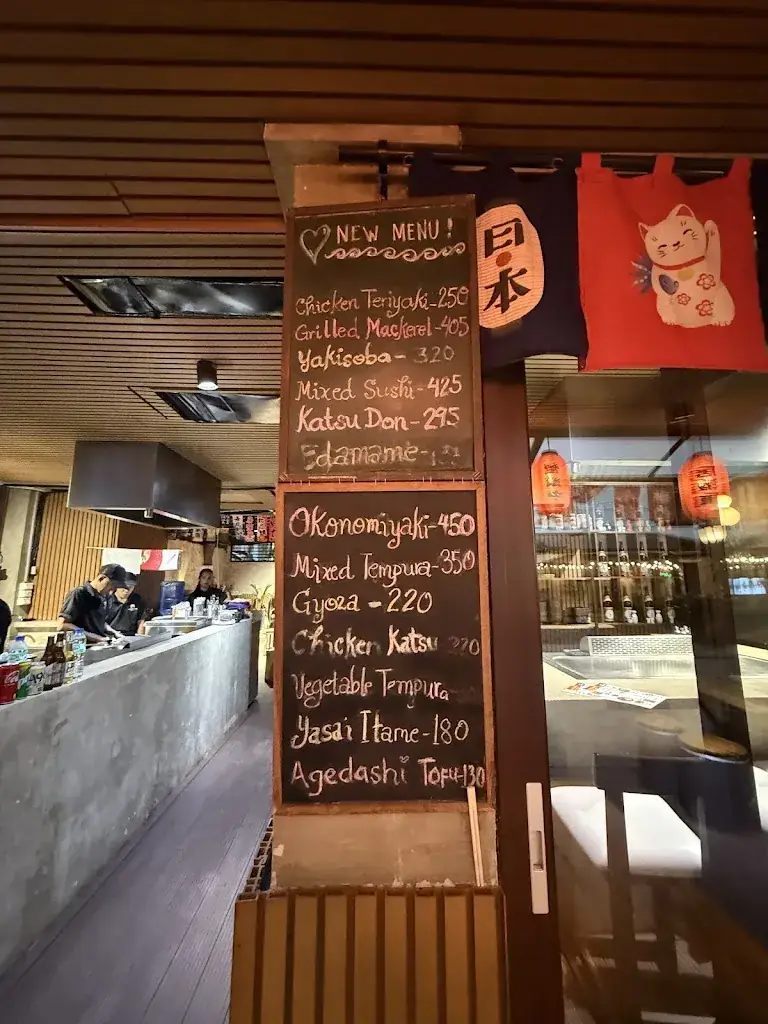 NEW MENU!
Chicken Teriyaki-250
Grilled Mackerel-405
Yakisoba- 320
Mixed Sushi-425
Katsu Don-295
Edamame-
Okonomiyaki-450
Mixed Tempura-350
Gyoza -220
Chicken Katsu 220
Vegetable Tempura
Yasai Itame-180
Agedashi Tofu-130
日本